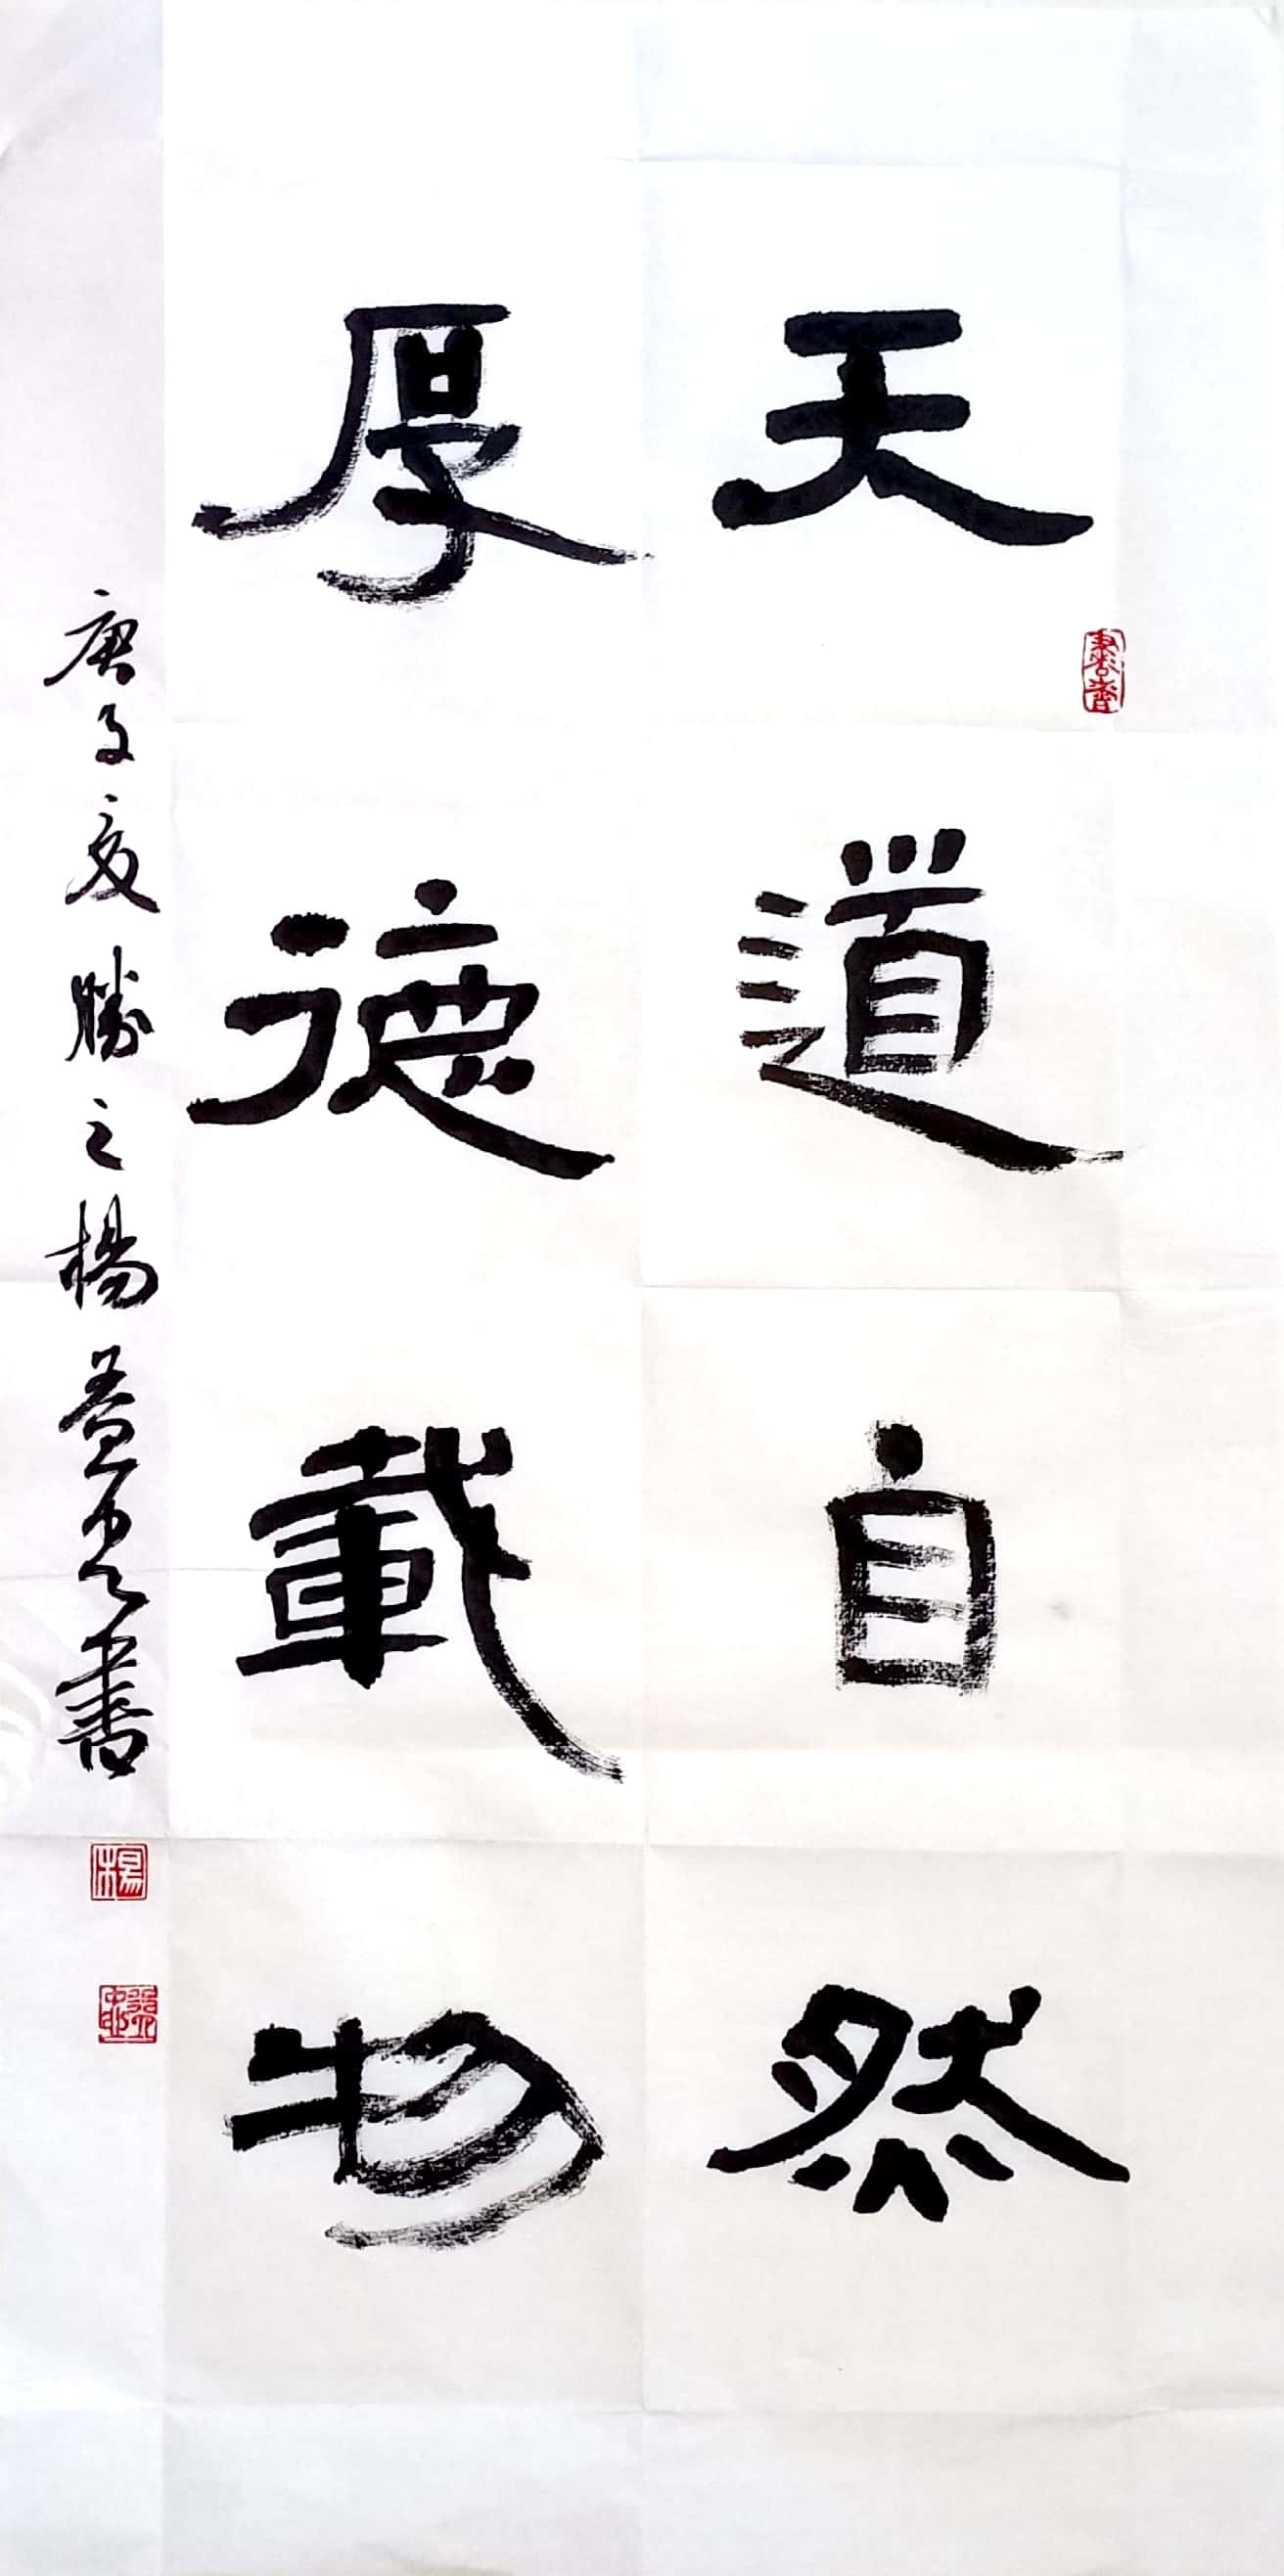 天道自然
厚德載物
庚子夏勝之楊益忠書
楊